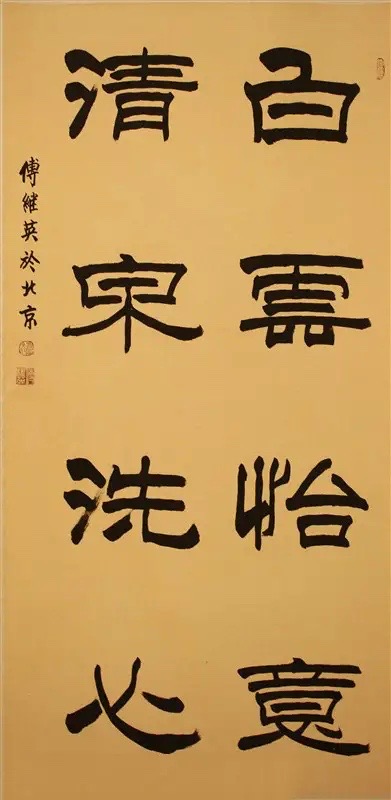 白雲怡意
清泉洗心
傅継英於北京